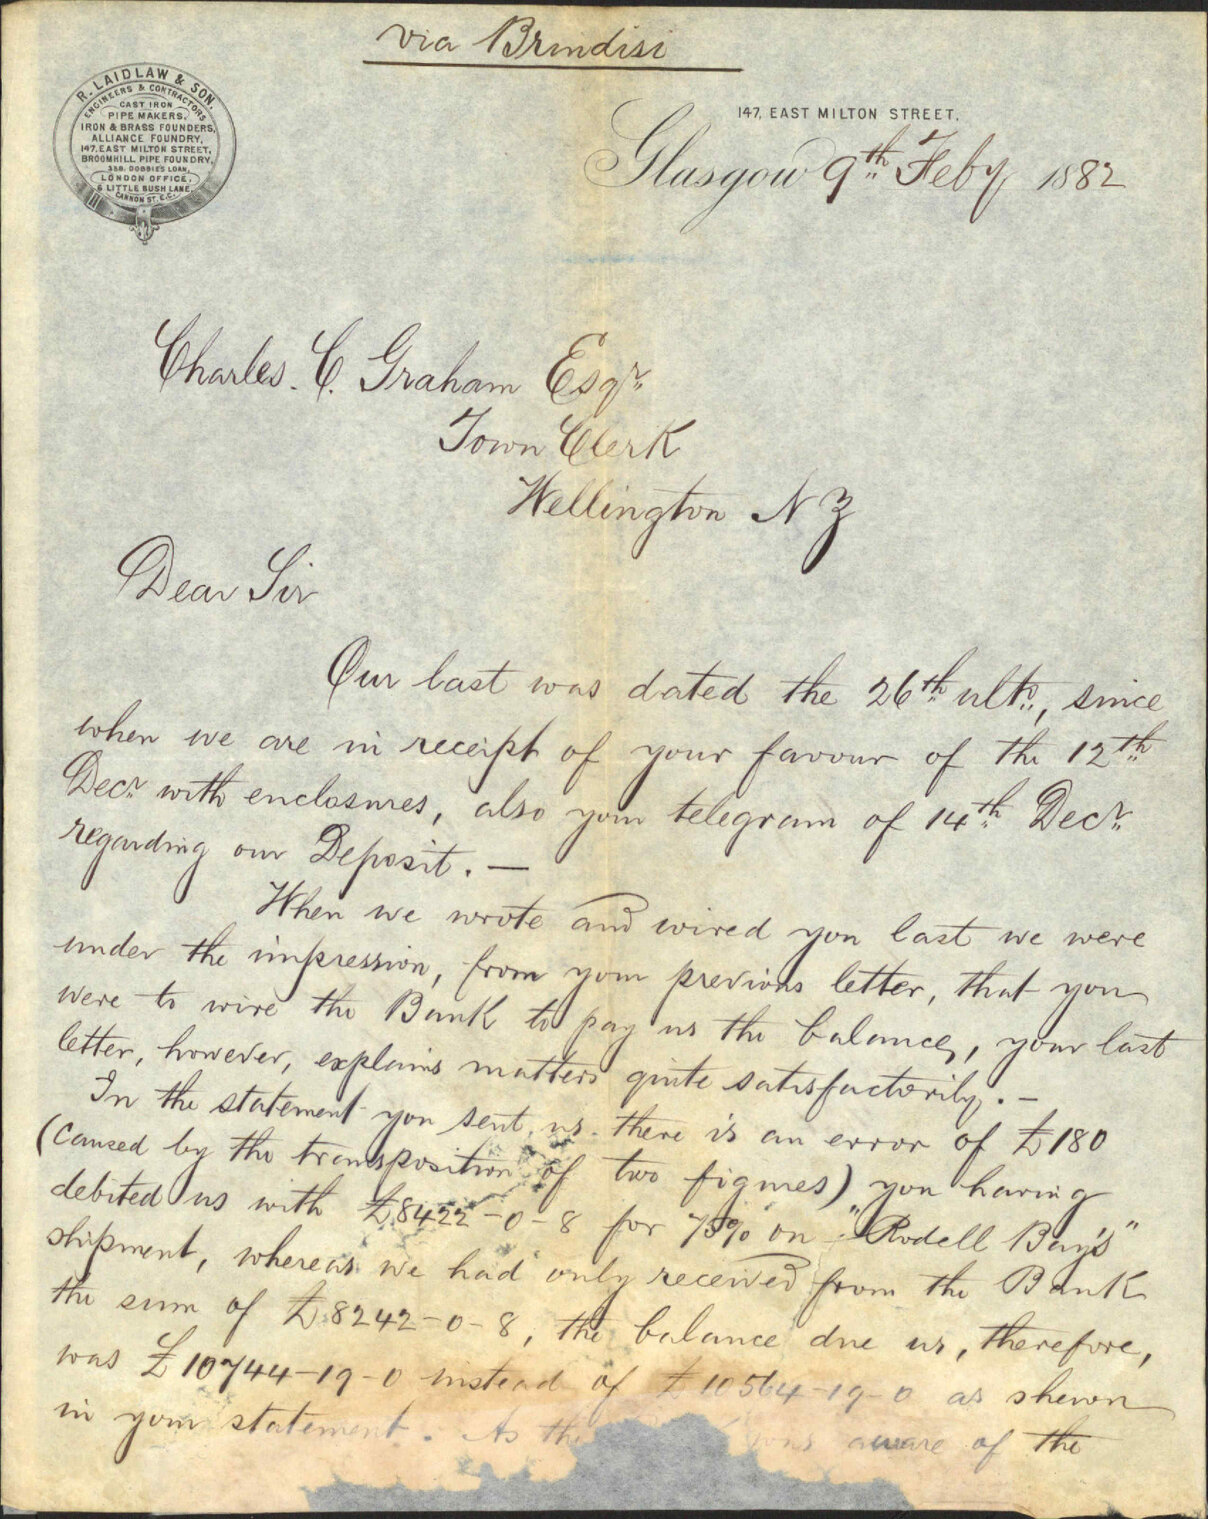 via Brindisi
R. LAIDLAW & SON.
ENGINEERS & CONTRACTORS
CAST IRON
PIPE MAKERS,
IRON & BRASS FOUNDERS,
ALLIANCE FOUNDRY,
147, EAST MILTON STREET,
BROOMHILL PIPE FOUNDRY,
358, DOBBIES LOAN,
LONDON OFFICE,
6 LITTLE BUSH LANE,
CANNON ST. E.C.
147, EAST MILTON STREET,
Glasgow 9th Feby 1882
Charles. C. Graham Esqr.
Town Clerk
Wellington N Z
Dear Sir
Our last was dated the 26th ulto., since
when we are in receipt of your favour of the 12th
Decr. with enclosures, also your telegram of 14th Decr.
regarding our Deposit. —
When we wrote and wired you last we were
under the impression, from your previous letter, that you
were to wire the Bank to pay us the balance, your last
letter, however, explains matters quite satisfactorily. —
In the statement you sent us there is an error of £180
(caused by the transposition of two figures) you having
debited us with £8422-0-8 for 75% on "Rodell Bay's"
shipment, whereas we had only received from the Bank
the sum of £8242-0-8, the balance due us, therefore,
was £10744-19-0 instead of £10564-19-0 as shewn
in your statement. As the was aware of the